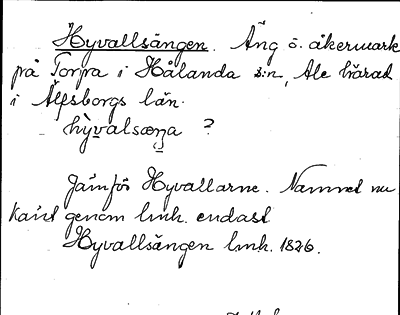 Hyvallsängen. Äng ö. åkermark
på Torpa i Hålanda s:n, Ale härad
i Älfsborgs län.
hy̱valsæŋa ?
Jämför Hyvallarne. Namnet nu
känt genom lmh. endast
Hyvallsängen lmh. 1826.